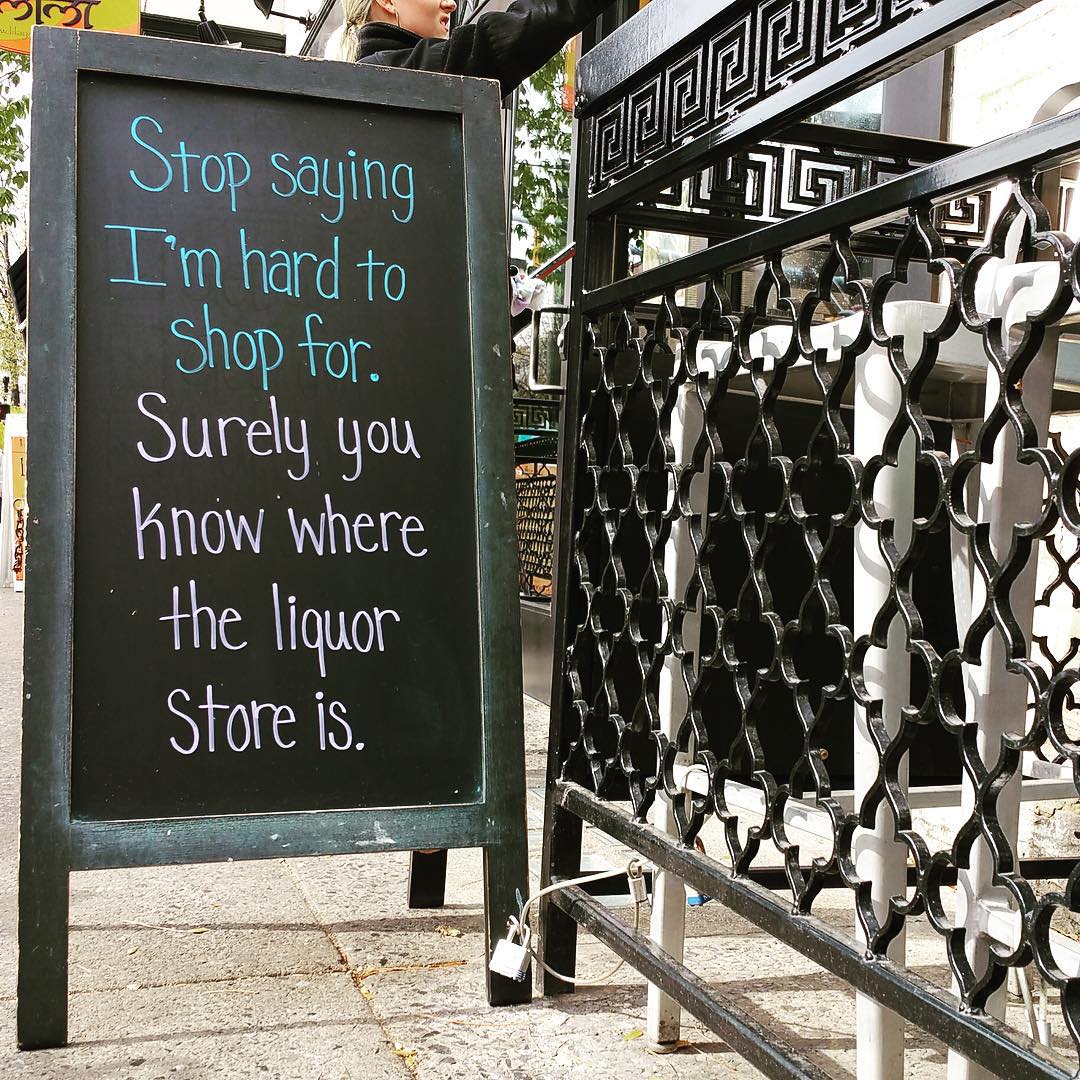 Stop saying
I'm hard to
shop for.
Surely you
know where
the liquor
store is.